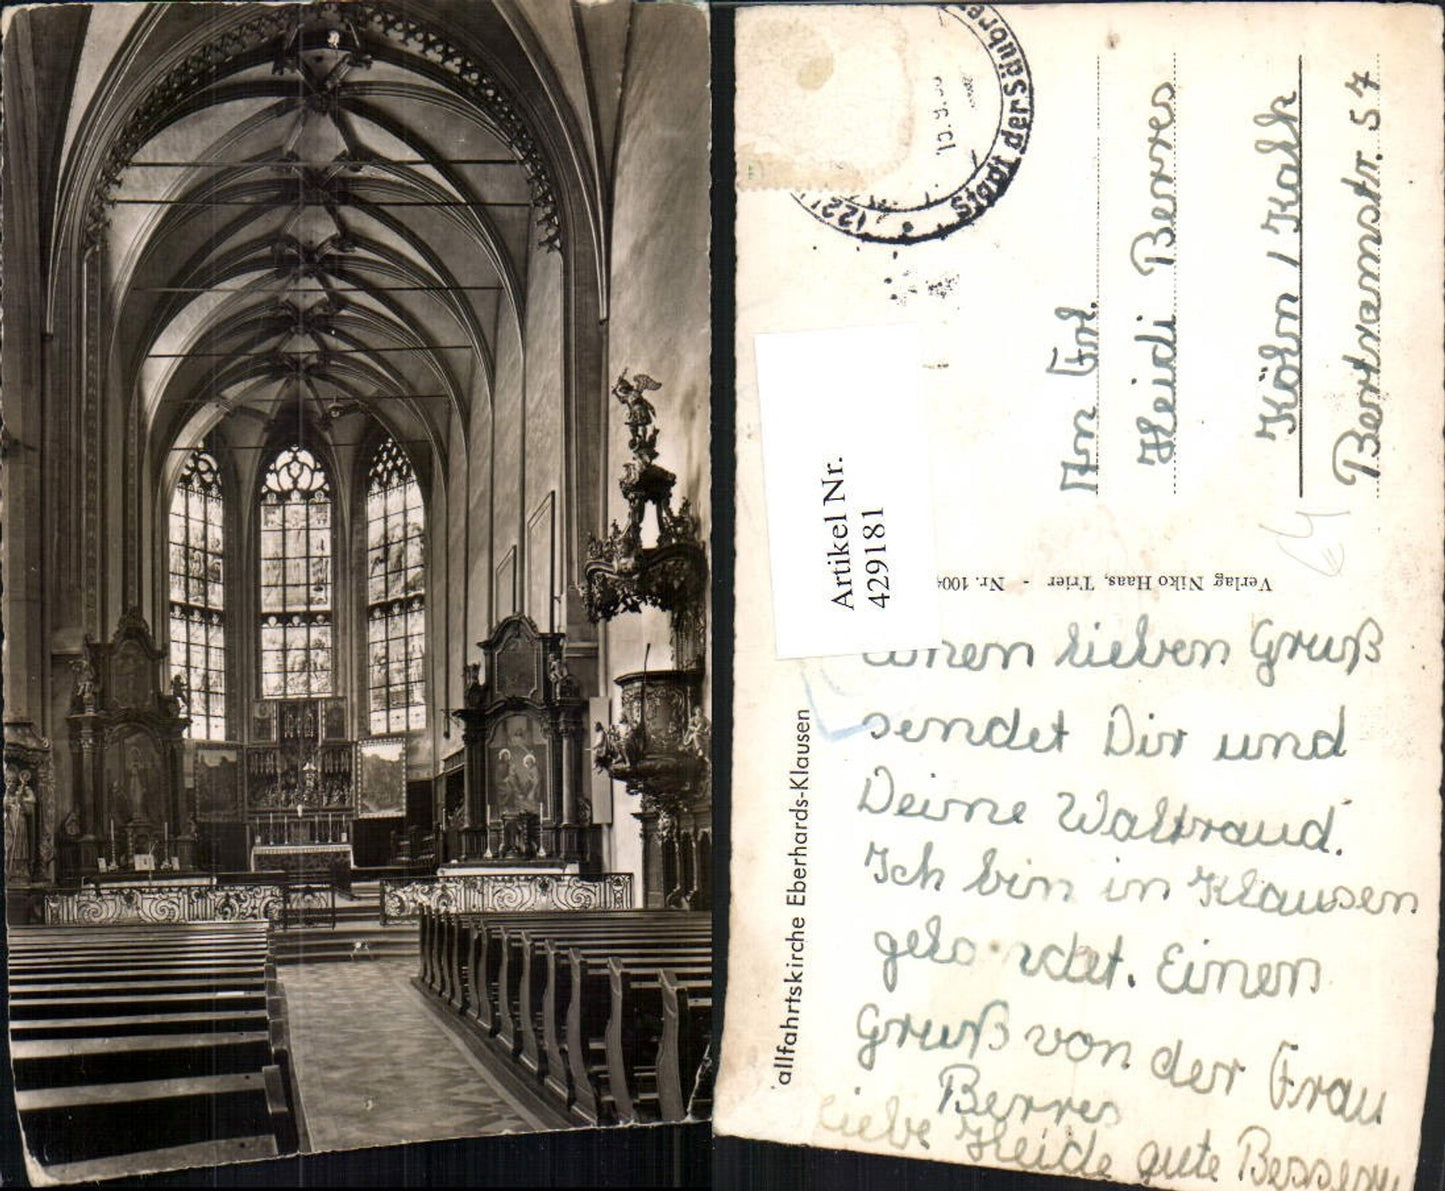 Stadt der Säubre
(22
10.9.56
An Frl.
Heidi Berres
Köln / Kalk
Bertramstr. 57
Artikel Nr.
429181
Verlag Niko Haas, Trier - Nr. 1004
allfahrtskirche Eberhards-Klausen
Einen lieben Gruß
sendet Dir und
Deine Waltraud.
Ich bin in Klausen
gelandet. Einen
Gruß von der Frau
Berres
Liebe Heide gute Besserung